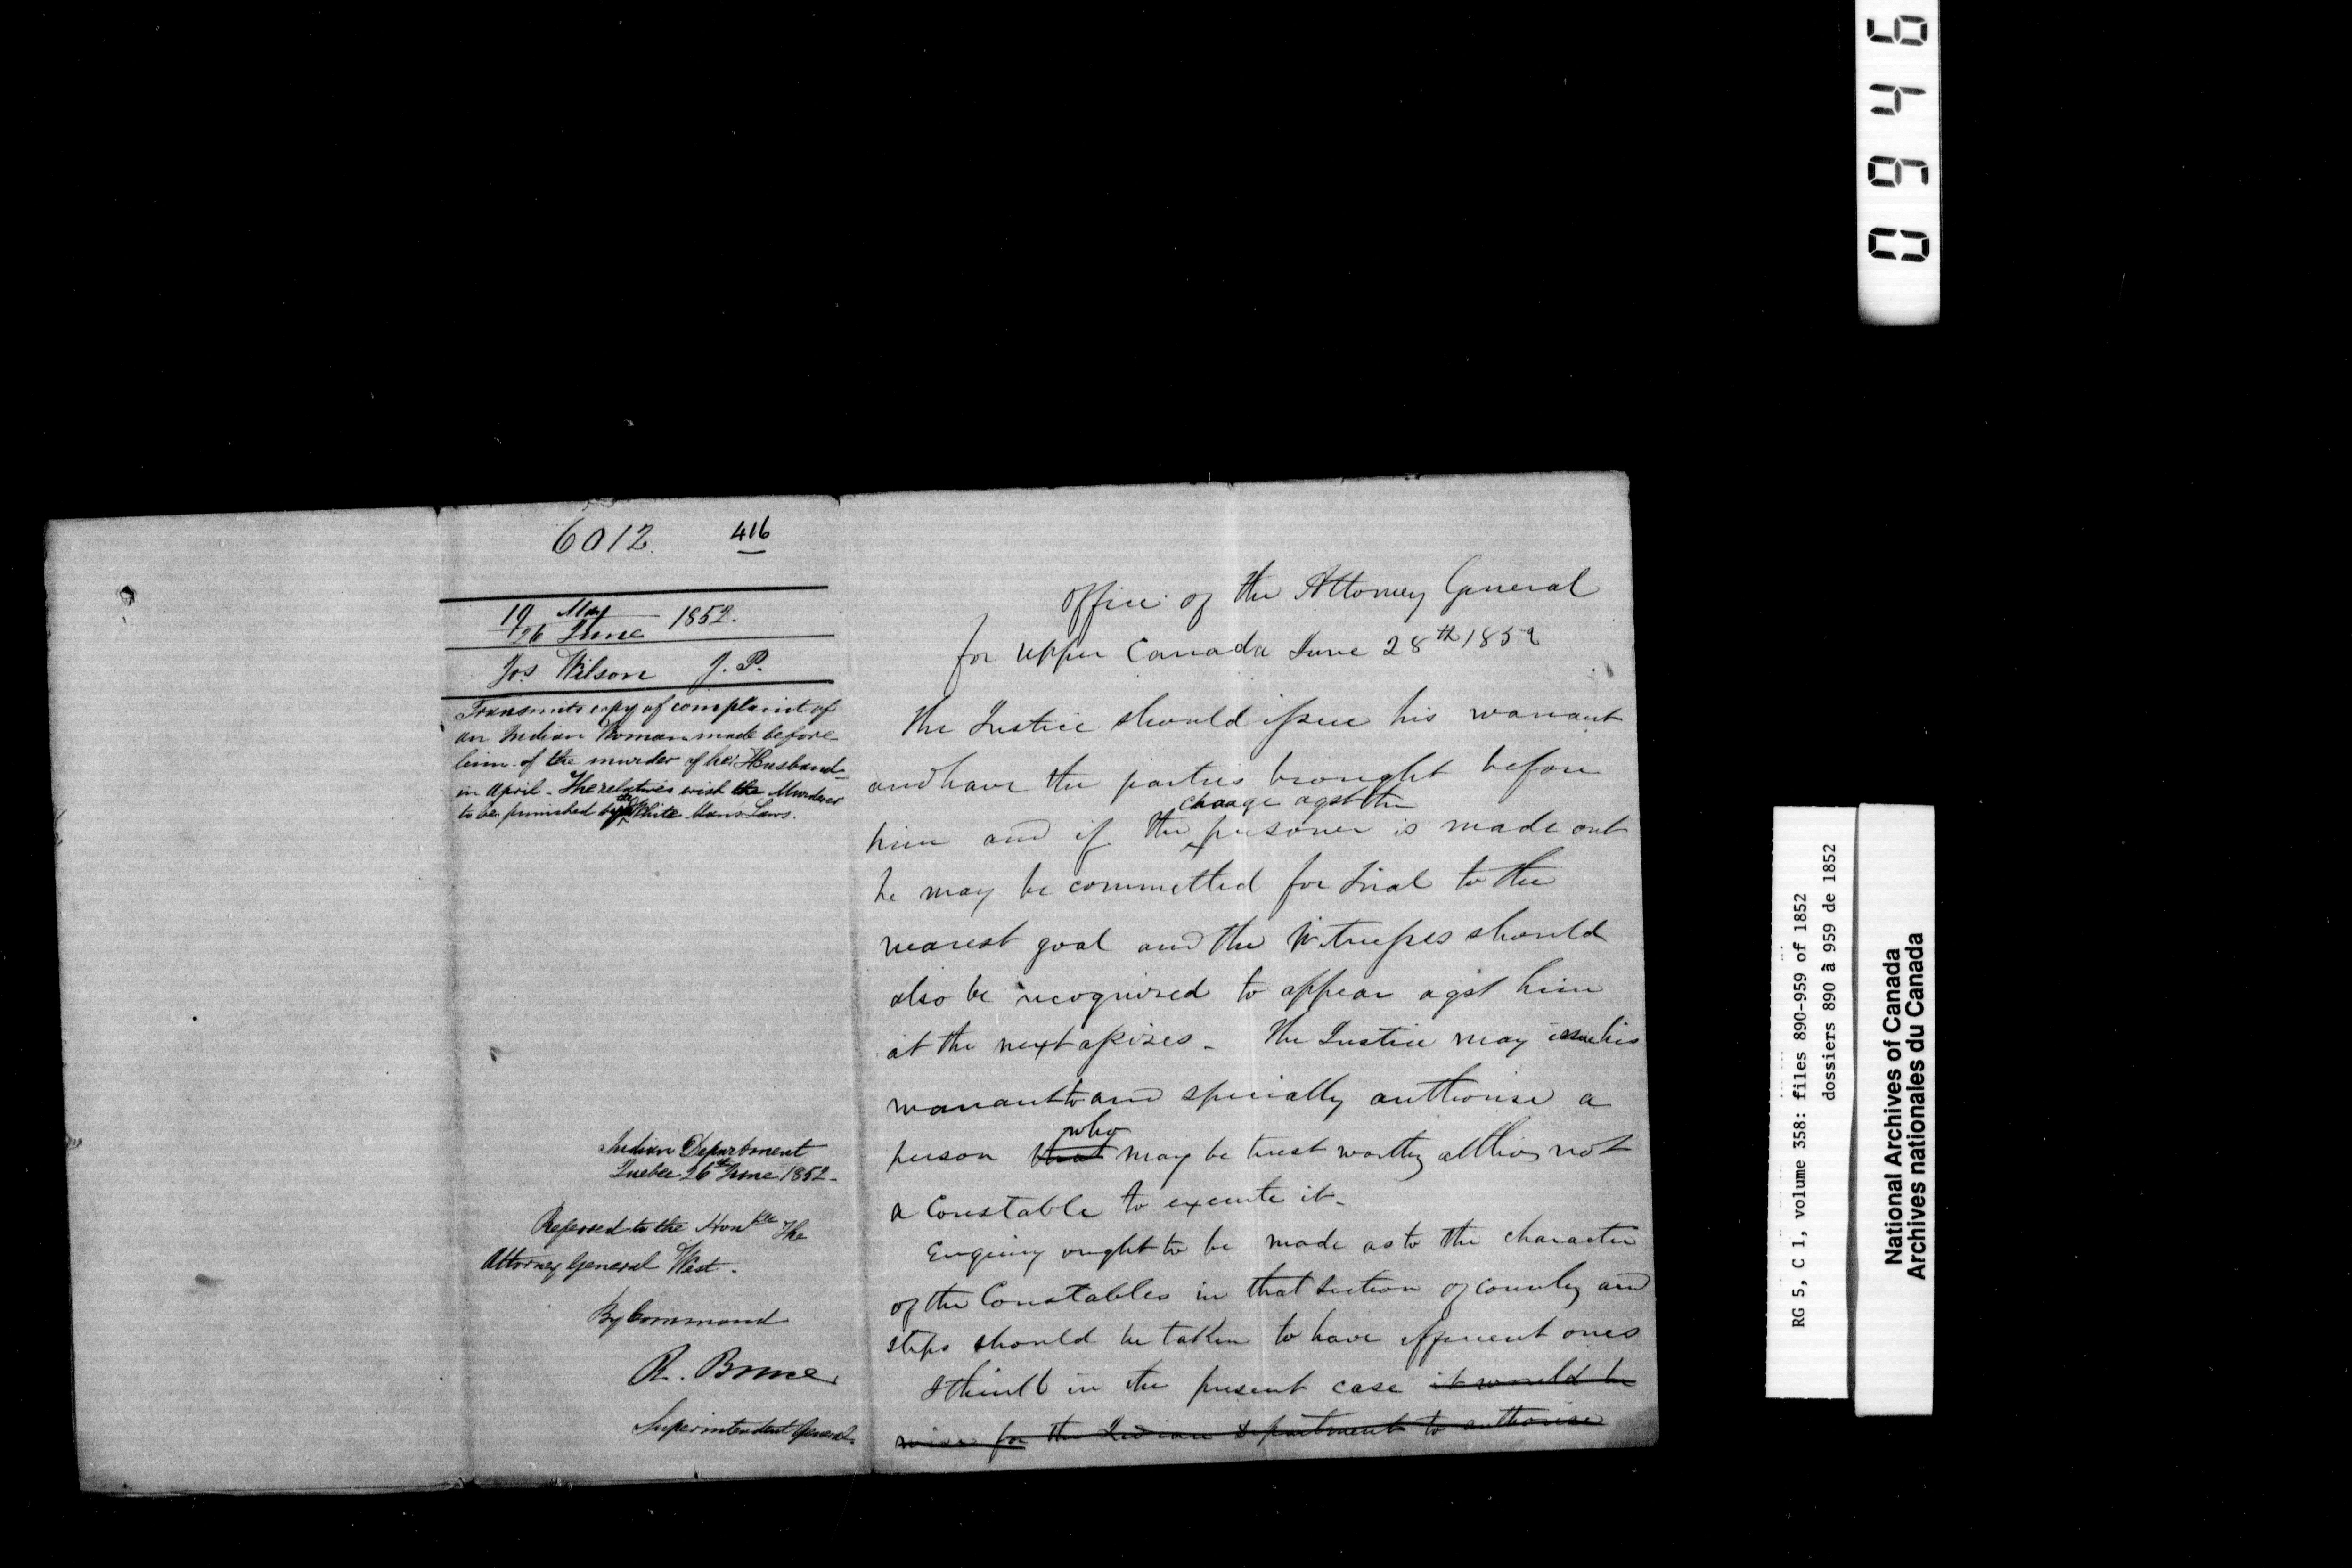 6012. 416
19 May
/26 June 1852.
Jos Wilson J. P.
Transmits copy of complaint of
an Indian Woman made before
him of the murder of her Husband
in April - The relatives wish the Murderer
to be punished by the White Mans Laws.
Indian Department
Quebec 26th June 1852 -
Referred to the Honble The
Attorney General West.
By Command
R. Bruce
Superintendent General
Office of the Attorney General
for Upper Canada June 28th 1852
The Justice should issue his warrant
and have the parties brought before
him and if the charge agst the prisoner is made out
he may be committed for trial to the
nearest goal and the Witnesses should
also be recognized to appear agst him
at the next assizes - The Justice may issue his
warrant to and specially authorise a
person that who may be trust worthy altho not
a Constable to execute it -
Enquiry ought to be made as to the character
of the Constables in that section of country and
steps should be taken to have efficient ones
I think in the present case it would be
wise for the Indian Department to authorise
0946
RG 5, C 1, volume 358: files 890-959 of 1852
dossiers 890 à 959 de 1852
National Archives of Canada
Archives nationales du Canada